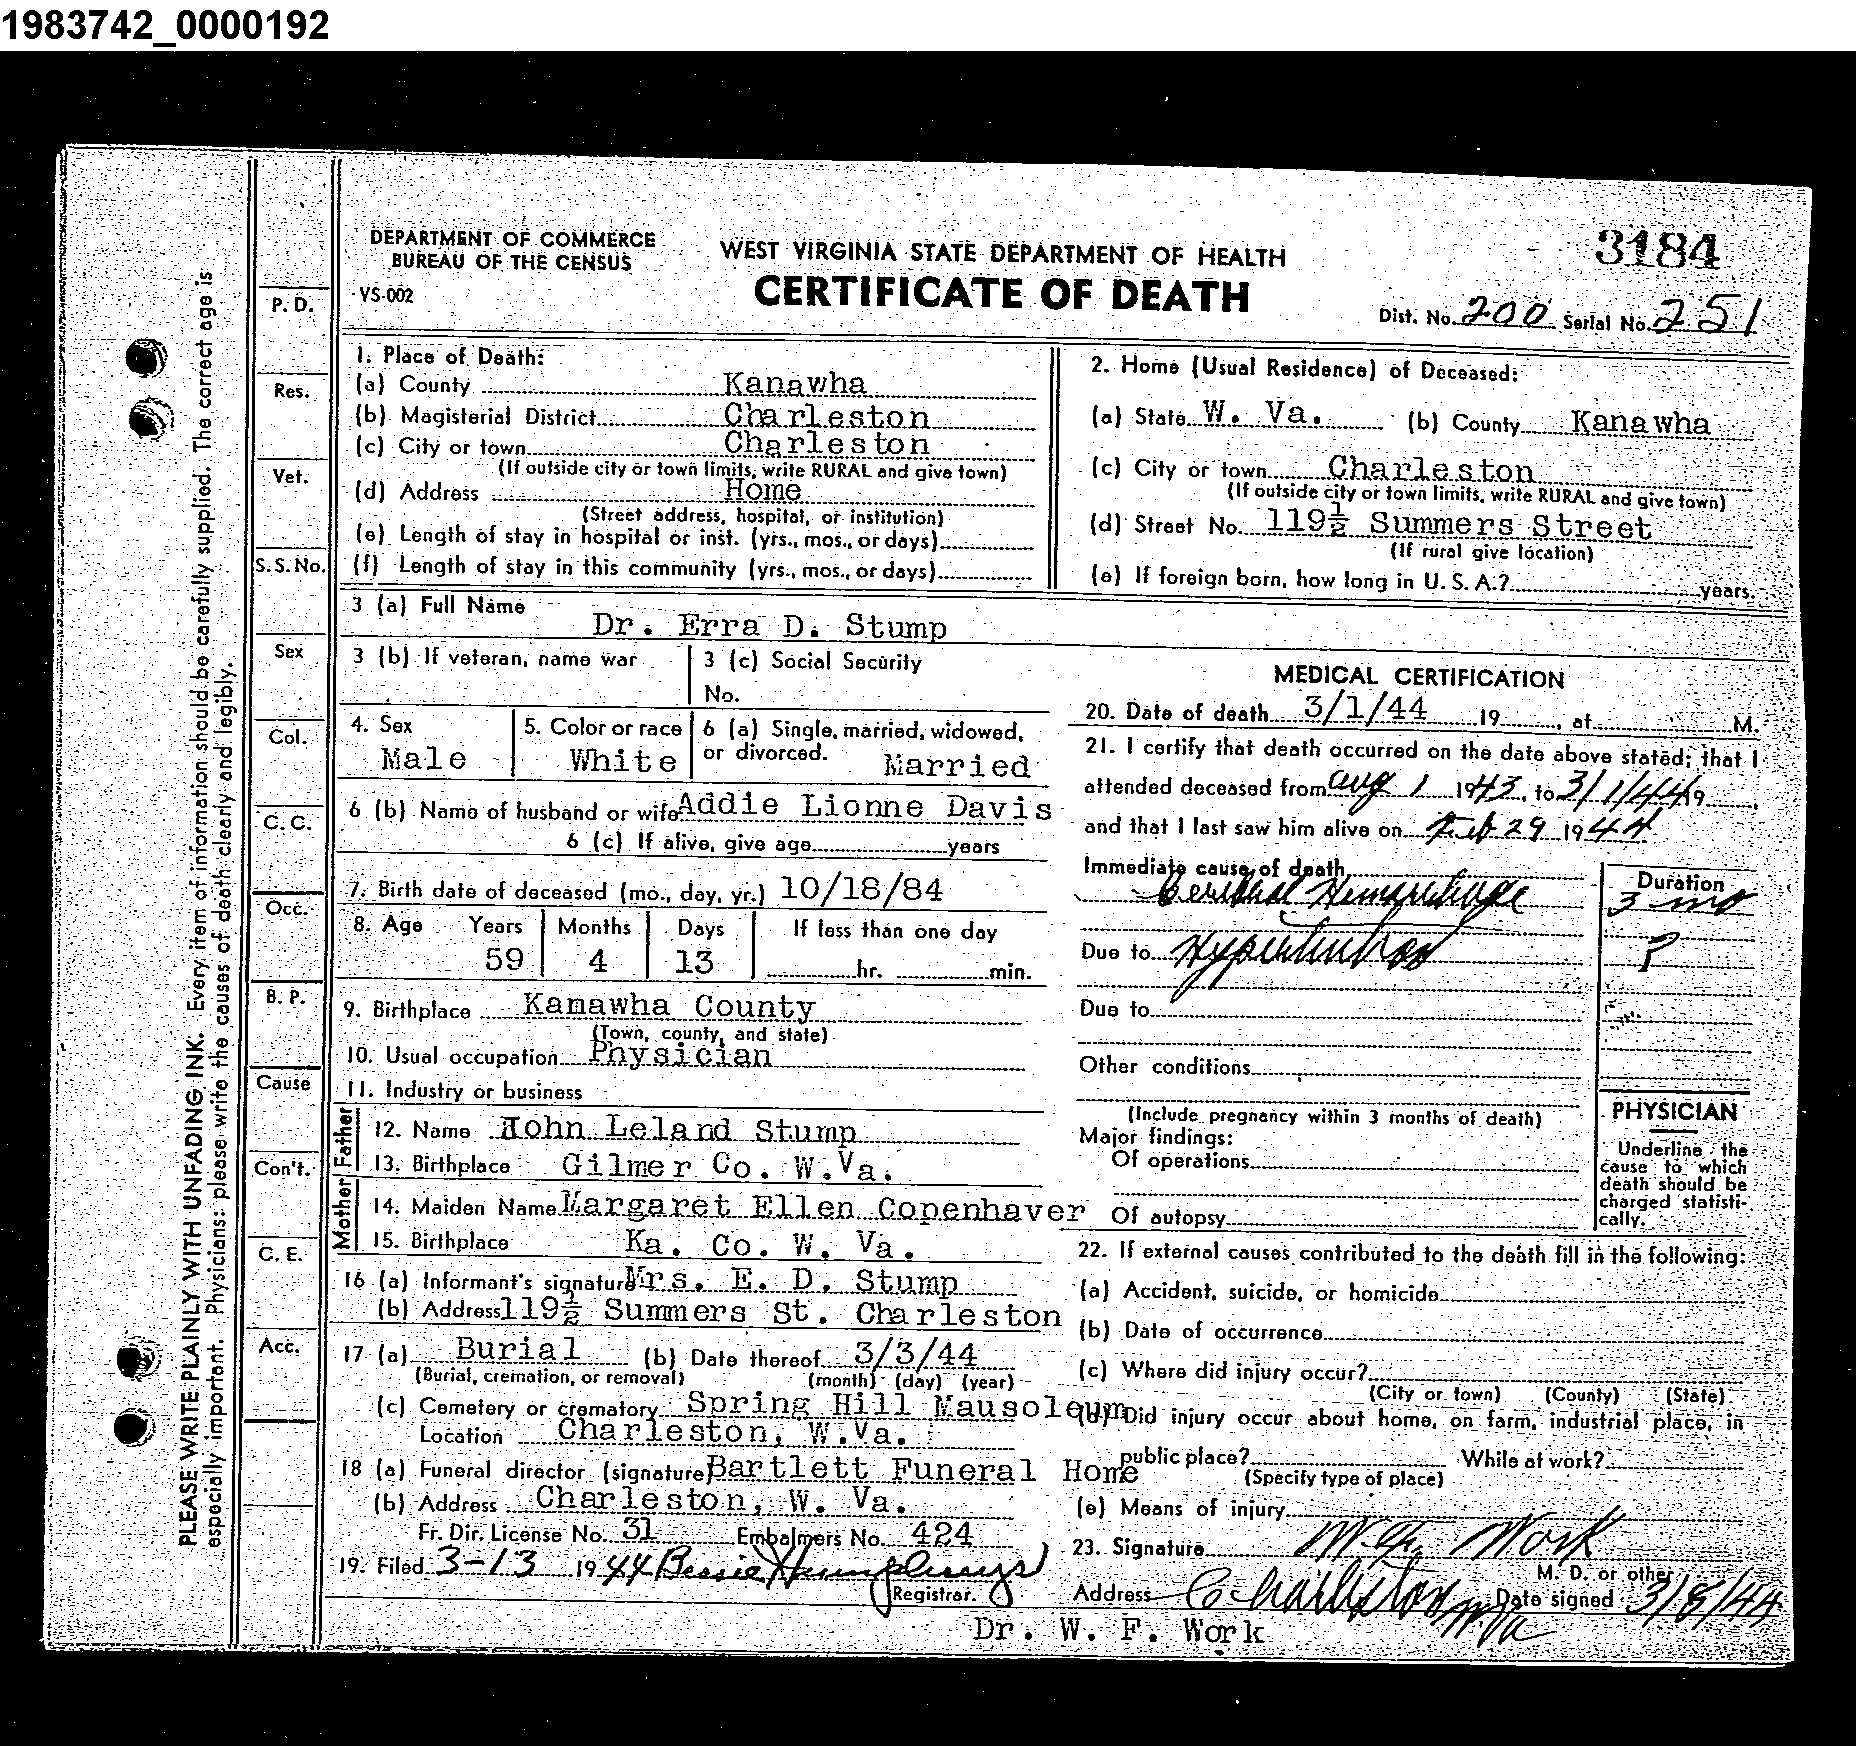 1983742_0000192
DEPARTMENT OF COMMERCE
BUREAU OF THE CENSUS
VS-002
WEST VIRGINIA STATE DEPARTMENT OF HEALTH
CERTIFICATE OF DEATH
3184
Dist. No. 200 Serial No. 251
PLEASE WRITE PLAINLY WITH UNFADING INK. Every item of information should be carefully supplied. The correct age is
especially important. Physicians: please write the causes of death clearly and legibly.
P. D.
Res.
Vet.
S. S. No.
Sex
Col.
C. C.
Occ.
B. P.
Cause
Con't.
C. E.
Acc.
1. Place of Death:
(a) County Kanawha
(b) Magisterial District Charleston
(c) City or town Charleston
(If outside city or town limits, write RURAL and give town)
(d) Address Home
(Street address, hospital, or institution)
(e) Length of stay in hospital or inst. (yrs., mos., or days)
(f) Length of stay in this community (yrs., mos., or days)
2. Home (Usual Residence) of Deceased:
(a) State W. Va. (b) County Kanawha
(c) City or town Charleston
(If outside city or town limits, write RURAL and give town)
(d) Street No. 119½ Summers Street
(If rural give location)
(e) If foreign born, how long in U. S. A.? years.
3 (a) Full Name Dr. Erra D. Stump
3 (b) If veteran, name war
3 (c) Social Security
No.
4. Sex Male
5. Color or race White
6 (a) Single, married, widowed,
or divorced. Married
6 (b) Name of husband or wife Addie Lionne Davis
6 (c) If alive, give age years
7. Birth date of deceased (mo., day, yr.) 10/18/84
8. Age Years Months Days If less than one day
59 4 13 hr. min.
9. Birthplace Kanawha County
(Town, county, and state)
10. Usual occupation Physician
11. Industry or business
Father
12. Name John Leland Stump
13. Birthplace Gilmer Co. W.Va.
Mother
14. Maiden Name Margaret Ellen Copenhaver
15. Birthplace Ka. Co. W. Va.
16 (a) Informant's signature Mrs. E. D. Stump
(b) Address 119½ Summers St. Charleston
17 (a) Burial (b) Date thereof 3/3/44
(Burial, cremation, or removal) (month) (day) (year)
(c) Cemetery or crematory Spring Hill Mausoleum
Location Charleston, W.Va.
18 (a) Funeral director (signature) Bartlett Funeral Home
(b) Address Charleston, W. Va.
Fr. Dir. License No. 31 Embalmers No. 424
19. Filed 3-13 1944 Bessie Humphreys
Registrar.
MEDICAL CERTIFICATION
20. Date of death 3/1/44 19 , at M.
21. I certify that death occurred on the date above stated; that I
attended deceased from Aug 1 1943, to 3/1/44 19
and that I last saw him alive on Feb 29 1944
Immediate cause of death
Cerebral Hemorrhage
Duration
3 mo
Due to Hypertension
?
Due to
Other conditions
(Include pregnancy within 3 months of death)
Major findings:
Of operations
Of autopsy
PHYSICIAN
Underline the
cause to which
death should be
charged statisti-
cally.
22. If external causes contributed to the death fill in the following:
(a) Accident, suicide, or homicide
(b) Date of occurrence
(c) Where did injury occur?
(City or town) (County) (State)
(d) Did injury occur about home, on farm, industrial place, in
public place? While at work?
(Specify type of place)
(e) Means of injury
23. Signature W. F. Work
M. D. or other
Address Charleston W Va Date signed 3/8/44
Dr. W. F. Work